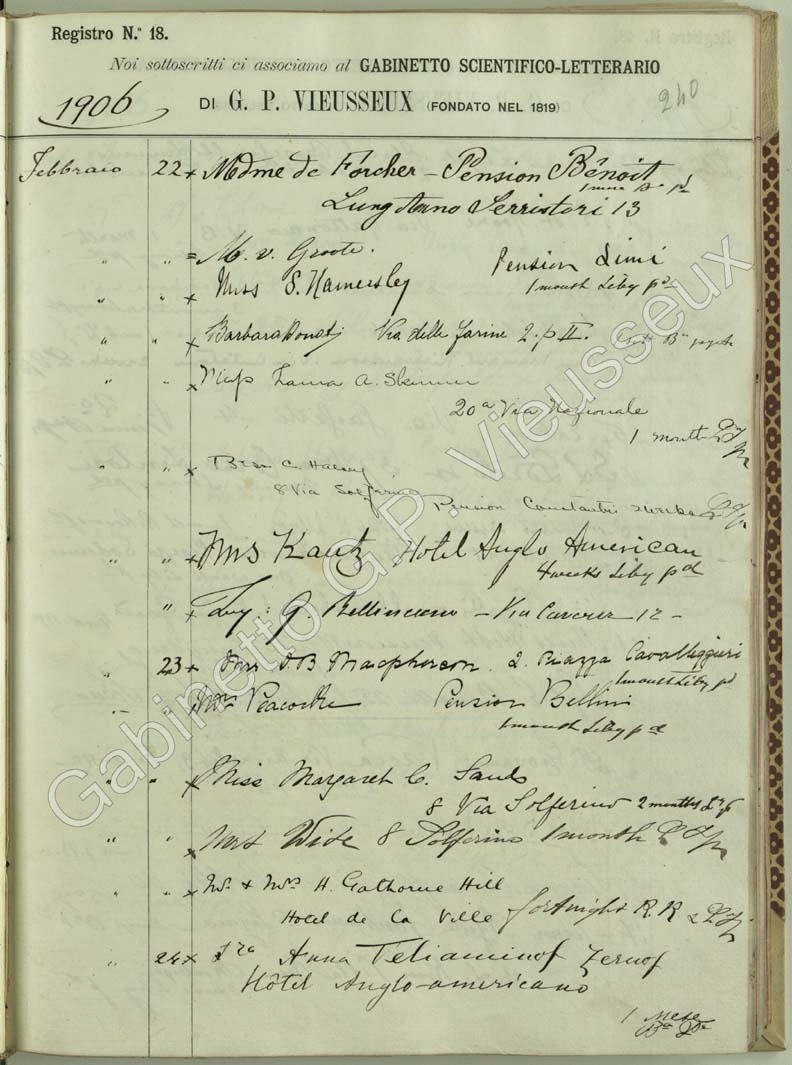 Registro N.° 18.
Noi sottoscritti ci associamo al GABINETTO SCIENTIFICO-LETTERARIO
1906 DI G. P. VIEUSSEUX (FONDATO NEL 1819)
240
Febbraio 22 x Mdme de Forcher – Pension Bênoit
Lung Arno Serristori 13
" " = M. v. Groote. Pension Limi
" " x Miss S. Hamersley 1 month Liby pd
" " x Barbara Donati Via delle farine 2. p II.
" " x Miss Laura A. Skinner
20a Via Nazionale
1 month
" " x Bess C. Halsey
8 Via Solferino Pension Constantin 2 weeks
" " x Mrs Kautz Hotel Anglo American
4 weeks Liby pd
" x G. Bellinciono – Via Cavour 12 –
" 23 x Mrs D. B. Macpherson. 2. Piazza Cavalleggieri
1 month Liby pd
" " x Mrs Peacocke Pension Bellini
1 month Liby pd
" " x Miss Margaret C. Sands
8 Via Solferino 2 months
" " x Mrs Wise 8 Solferino 1 month
" " x Mr & Mrs H. Gathorne Hill
Hotel de la Ville fortnight R.R &
" 24 x Anna Teliaminof Zernof
Hôtel Anglo-americano
1 Mese
Gabinetto G.P. Vieusseux